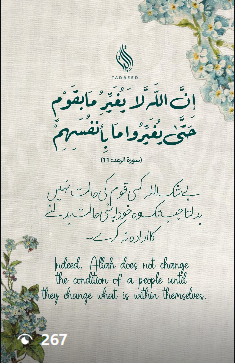 TADABBUR
إِنَّ اللَّهَ لَا يُغَيِّرُ مَا بِقَوْمٍ
حَتَّىٰ يُغَيِّرُوا مَا بِأَنْفُسِهِمْ
(سورة الرعد: 11)
بے شک اللہ کسی قوم کی حالت نہیں
بدلتا جب تک وہ خود اپنی حالت بدلنے
کا ارادہ نہ کرے۔
Indeed, Allah does not change
the condition of a people until
they change what is within themselves.
267